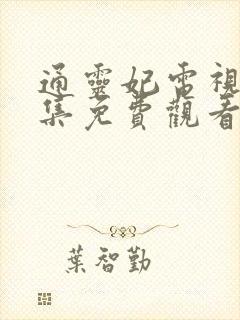 通靈妃電視
集免費觀看
葉智勤